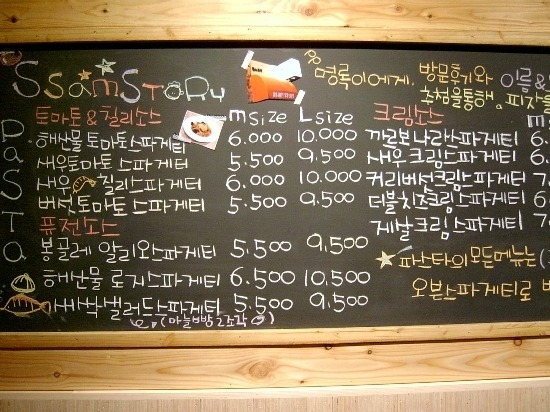 SsamStoRy
PaSTa
명록이에게,
방문후기와 이름&
추첨을통해, 피자
토마토&칠리소스 M SizE L SizE
해산물 토마토스파게티 6.000 10.000
새우토마토 스파게티 5.500 9.500
새우 칠리스파게티 6.000 10.000
버섯토마토 스파게티 5.500 9.500
퓨전소스
봉골레 알리오스파게티 5,500 9,500
해산물 로제스파게티 6,500 10,500
새싹샐러드스파게티 5,500 9,500
(마늘빵 2조각)
크림소스 m
까르보나라스파게티 6.
새우 크림스파게티
커리버섯크림스파게티 7.
더블치즈크림스파게티 6.
게살크림스파게티 7.
★ 파스타의모든메뉴는(
오븐스파게티로